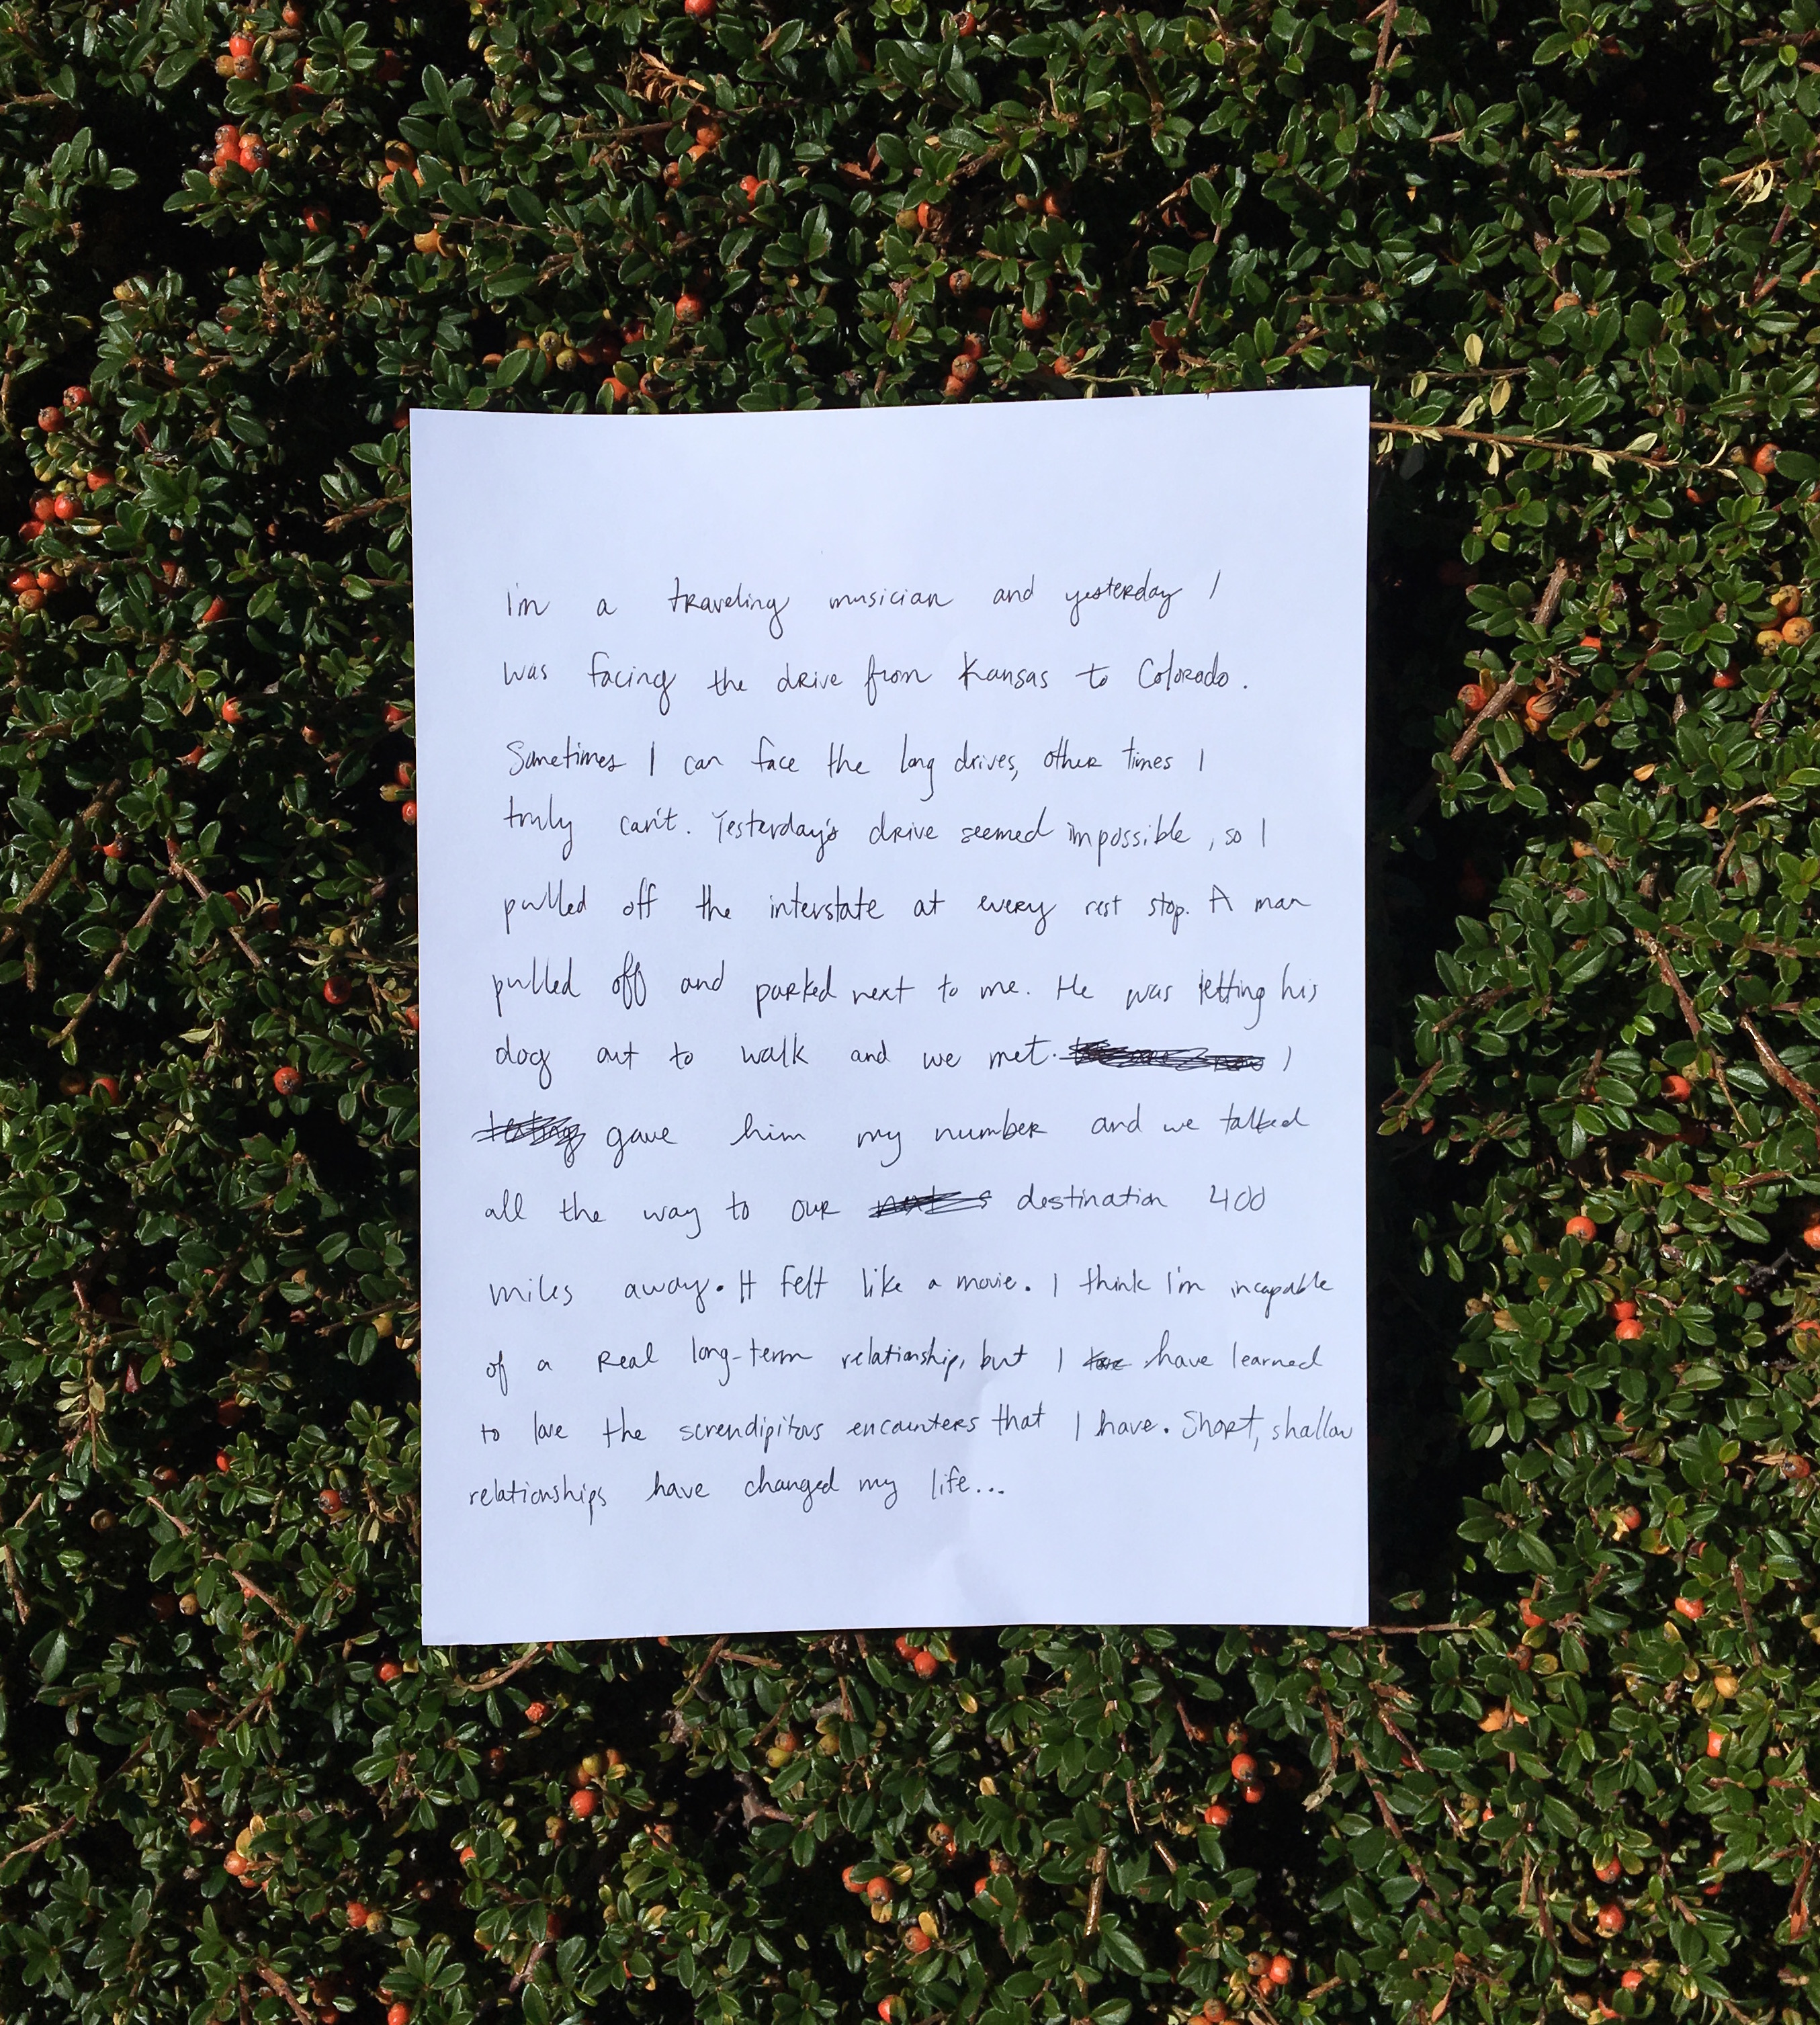 i'm a traveling musician and yesterday I
was facing the drive from Kansas to Colorado.
Sometimes I can face the long drives, other times I
truly can't. Yesterday's drive seemed impossible, so I
pulled off the interstate at every rest stop. A man
pulled off and parked next to me. He was letting his
dog out to walk and we met. I
gave him my number and we talked
all the way to our destination 400
miles away. It felt like a movie. I think I'm incapable
of a real long-term relationship, but I have learned
to love the serendipitous encounters that I have. Short, shallow
relationships have changed my life...